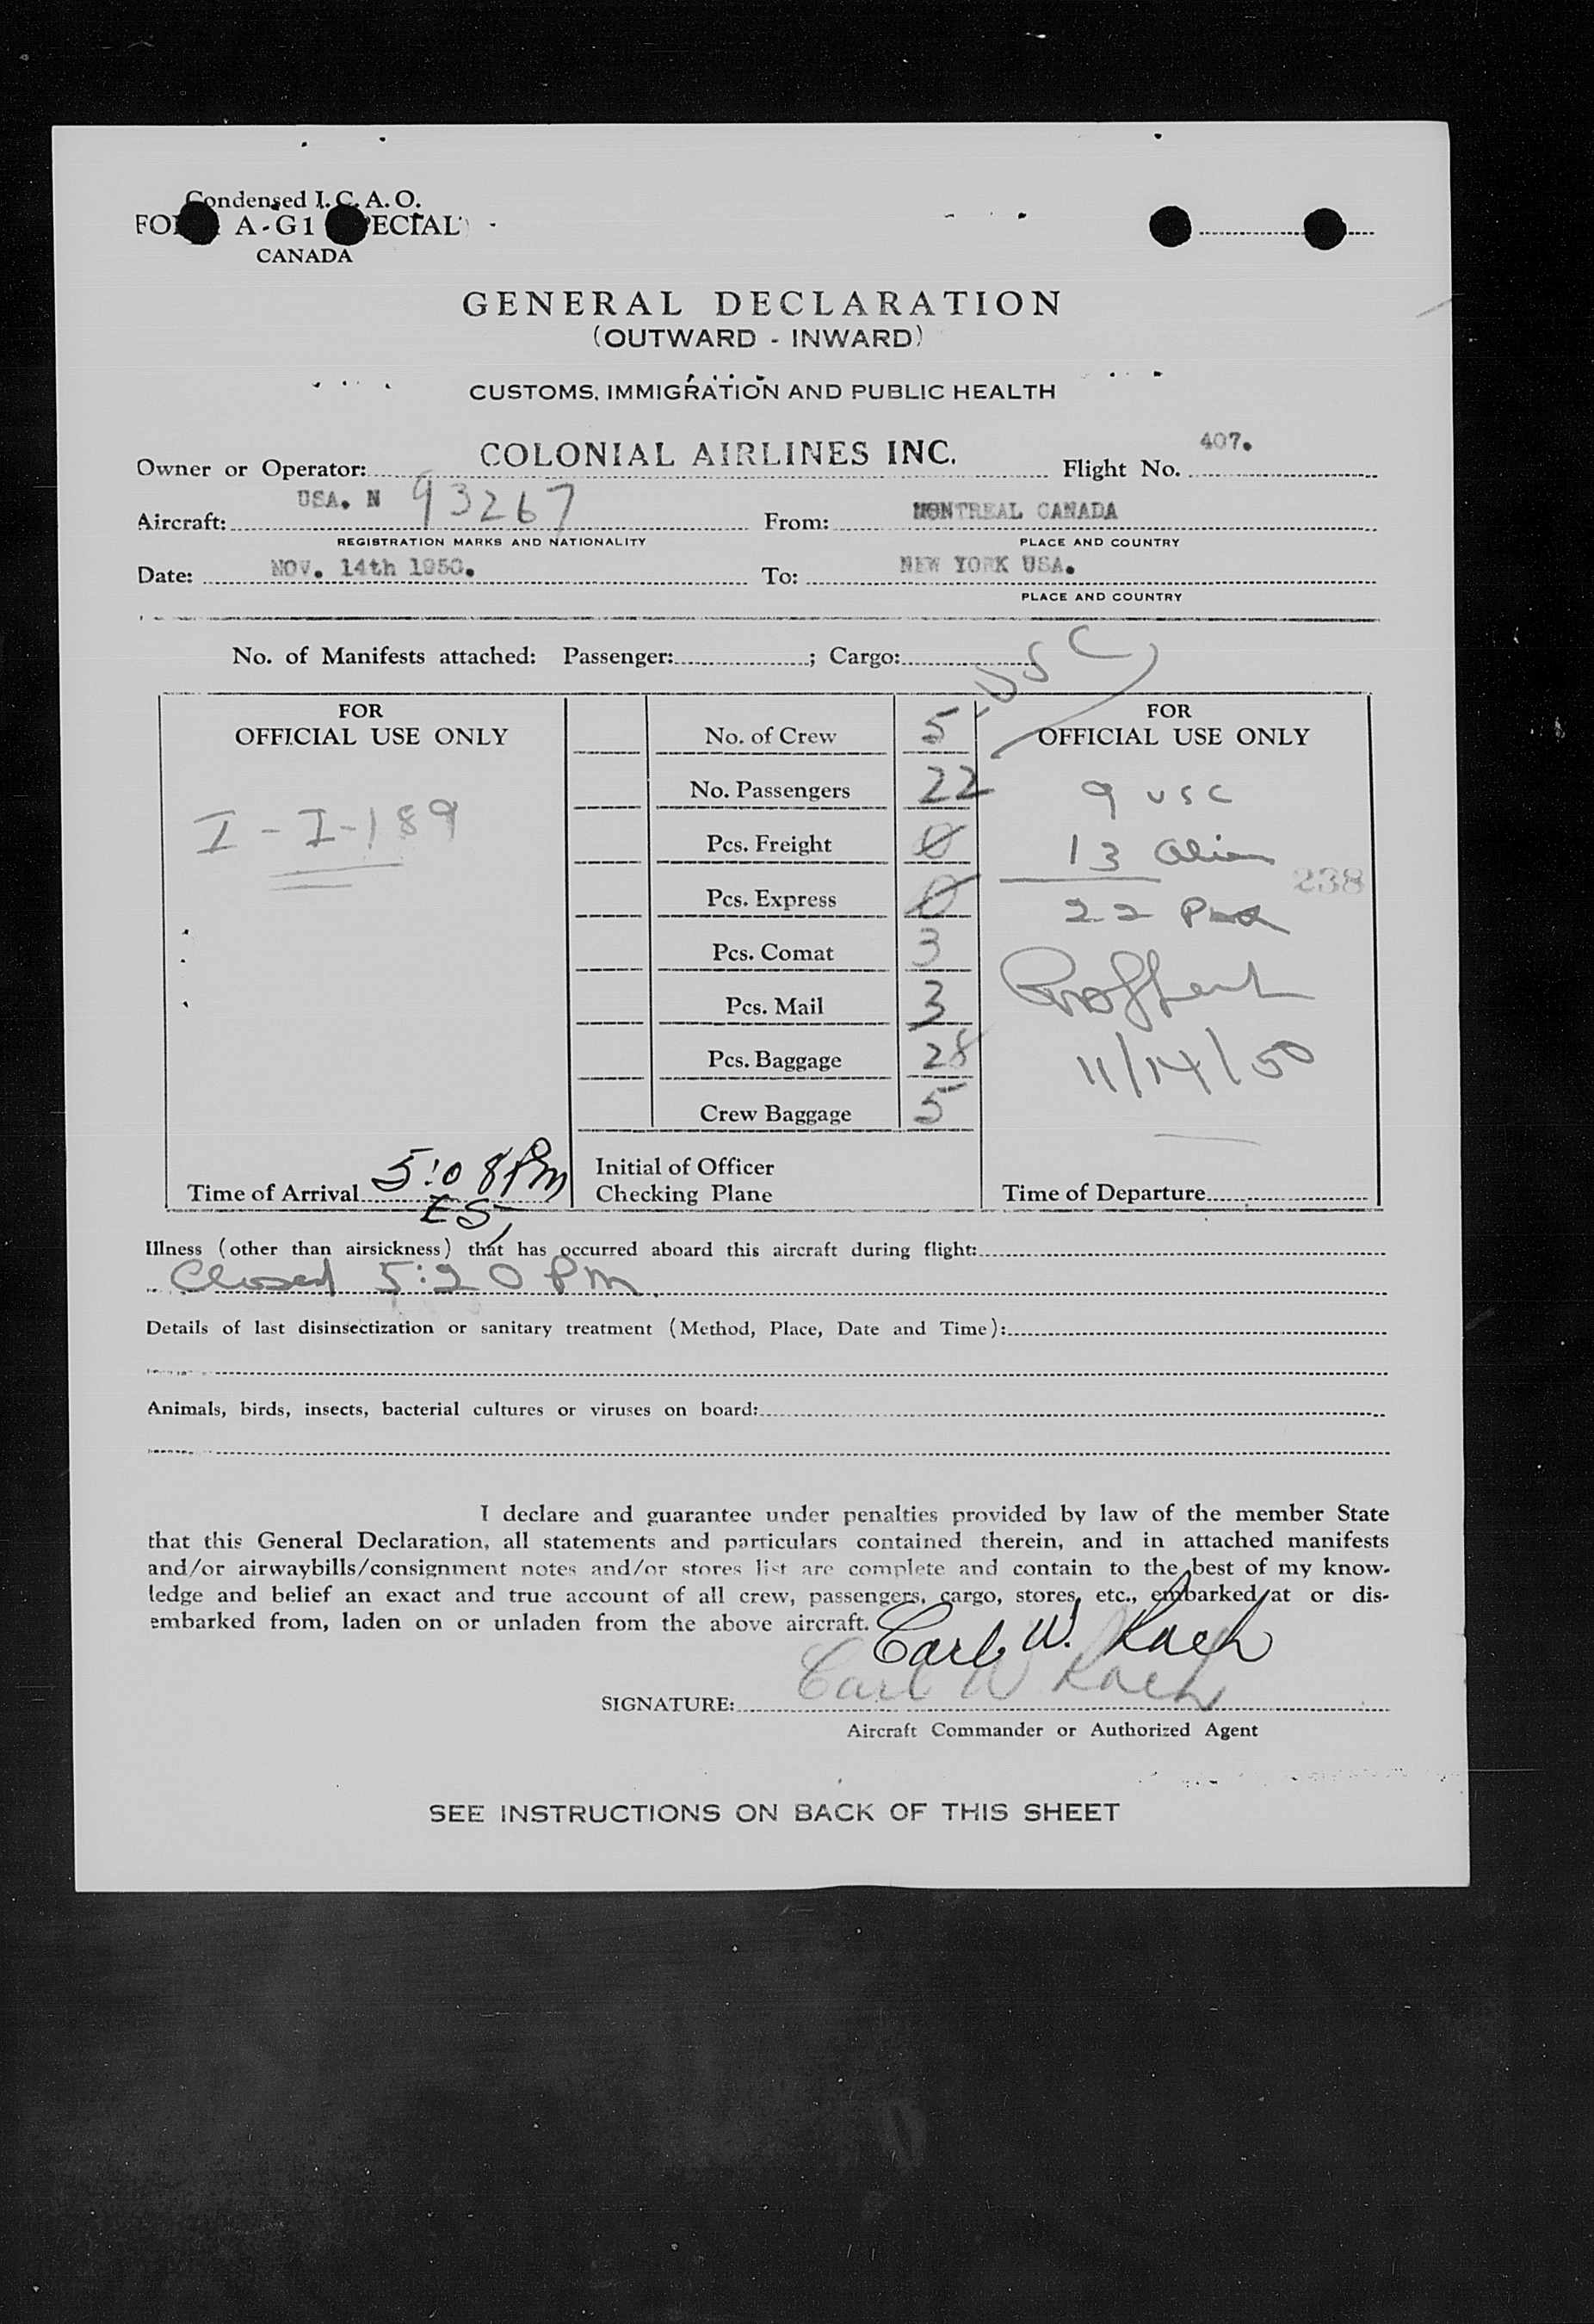 Condensed I. C. A. O.
A-G1
CANADA
GENERAL DECLARATION
(OUTWARD - INWARD)
CUSTOMS, IMMIGRATION AND PUBLIC HEALTH
Owner or Operator: COLONIAL AIRLINES INC. Flight No. 407.
Aircraft: USA. N 93267 From: MONTREAL CANADA
REGISTRATION MARKS AND NATIONALITY PLACE AND COUNTRY
Date: NOV. 14th 1950. To: NEW YORK USA.
PLACE AND COUNTRY
No. of Manifests attached: Passenger: ; Cargo:
USC
FOR
OFFICIAL USE ONLY
I - I - 189
No. of Crew 5
No. Passengers 22
Pcs. Freight 0
Pcs. Express 0
Pcs. Comat 3
Pcs. Mail 3
Pcs. Baggage 28
Crew Baggage 5
FOR
OFFICIAL USE ONLY
9 USC
13 Alien
238
22
11/14/50
Time of Arrival 5:08 PM
EST
Initial of Officer
Checking Plane
Time of Departure
Illness (other than airsickness) that has occurred aboard this aircraft during flight:
Closed 5:20 PM
Details of last disinsectization or sanitary treatment (Method, Place, Date and Time):
Animals, birds, insects, bacterial cultures or viruses on board:
I declare and guarantee under penalties provided by law of the member State
that this General Declaration, all statements and particulars contained therein, and in attached manifests
and/or airwaybills/consignment notes and/or stores list are complete and contain to the best of my know-
ledge and belief an exact and true account of all crew, passengers, cargo, stores, etc., embarked at or dis-
embarked from, laden on or unladen from the above aircraft.
Carl W. Koch
SIGNATURE: Carl W Koch
Aircraft Commander or Authorized Agent
SEE INSTRUCTIONS ON BACK OF THIS SHEET